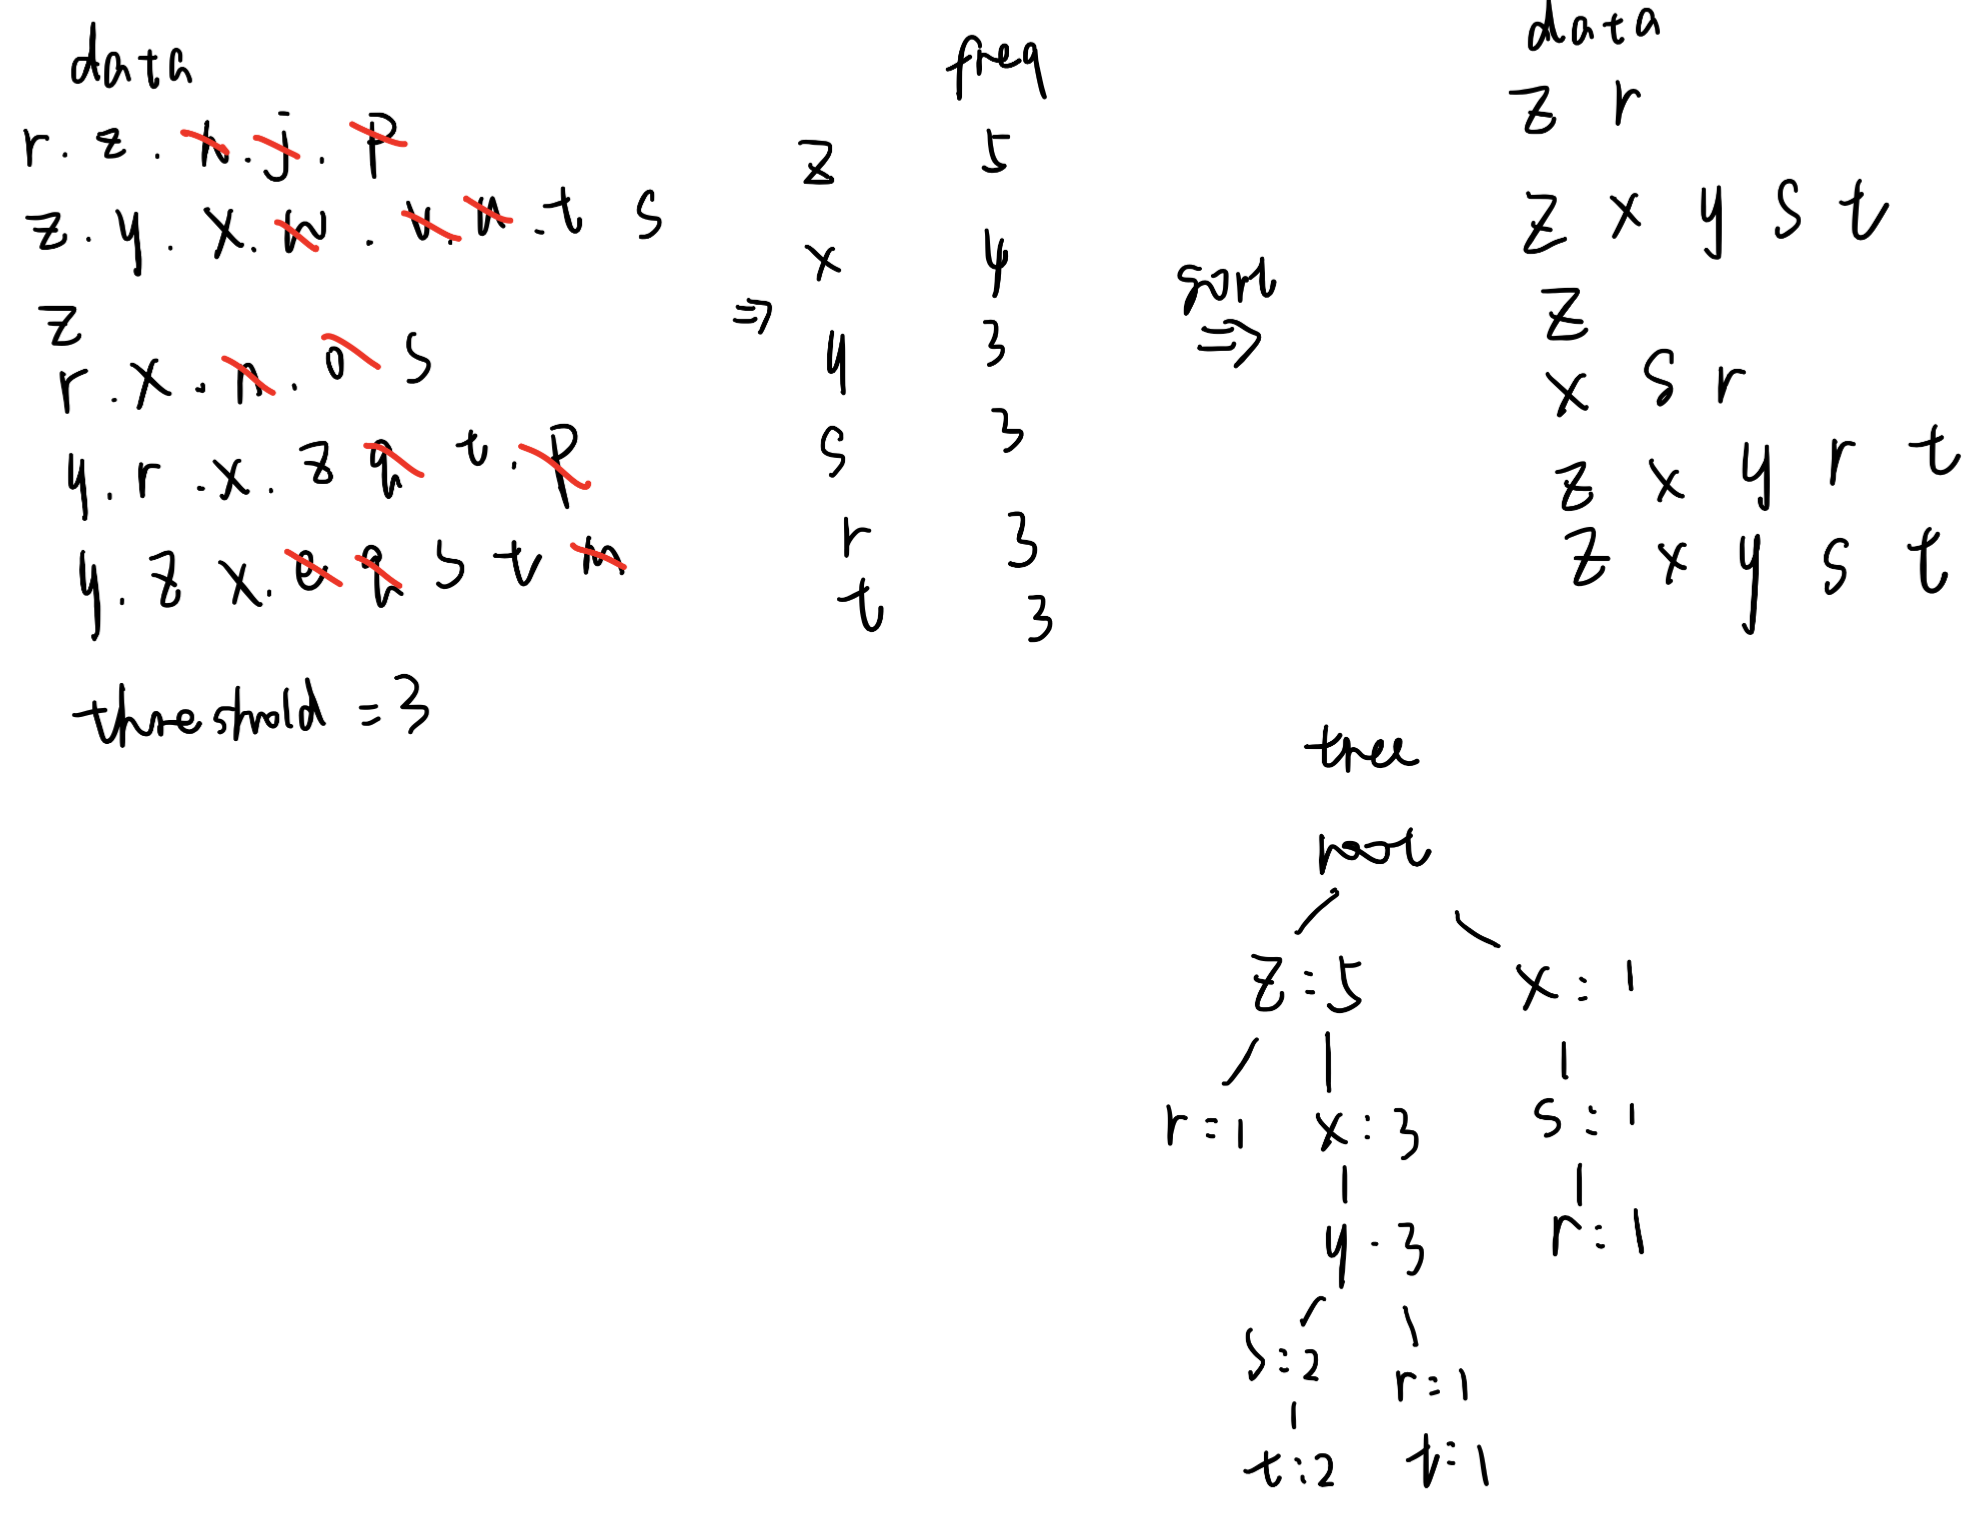 data
r . z . h . j . p
z . y . x . w . v . u . t s
z
r . x . n . o s
y . r . x . z q t . p
y . z x . e q s t m
threshold = 3
⇒
freq
z 5
x 4
y 3
s 3
r 3
t 3
sort
⇒
data
z r
z x y s t
z
x s r
z x y r t
z x y s t
tree
root
z : 5 x : 1
r : 1 x : 3 s : 1
y - 3 r : 1
s : 2 r : 1
t : 2 t : 1